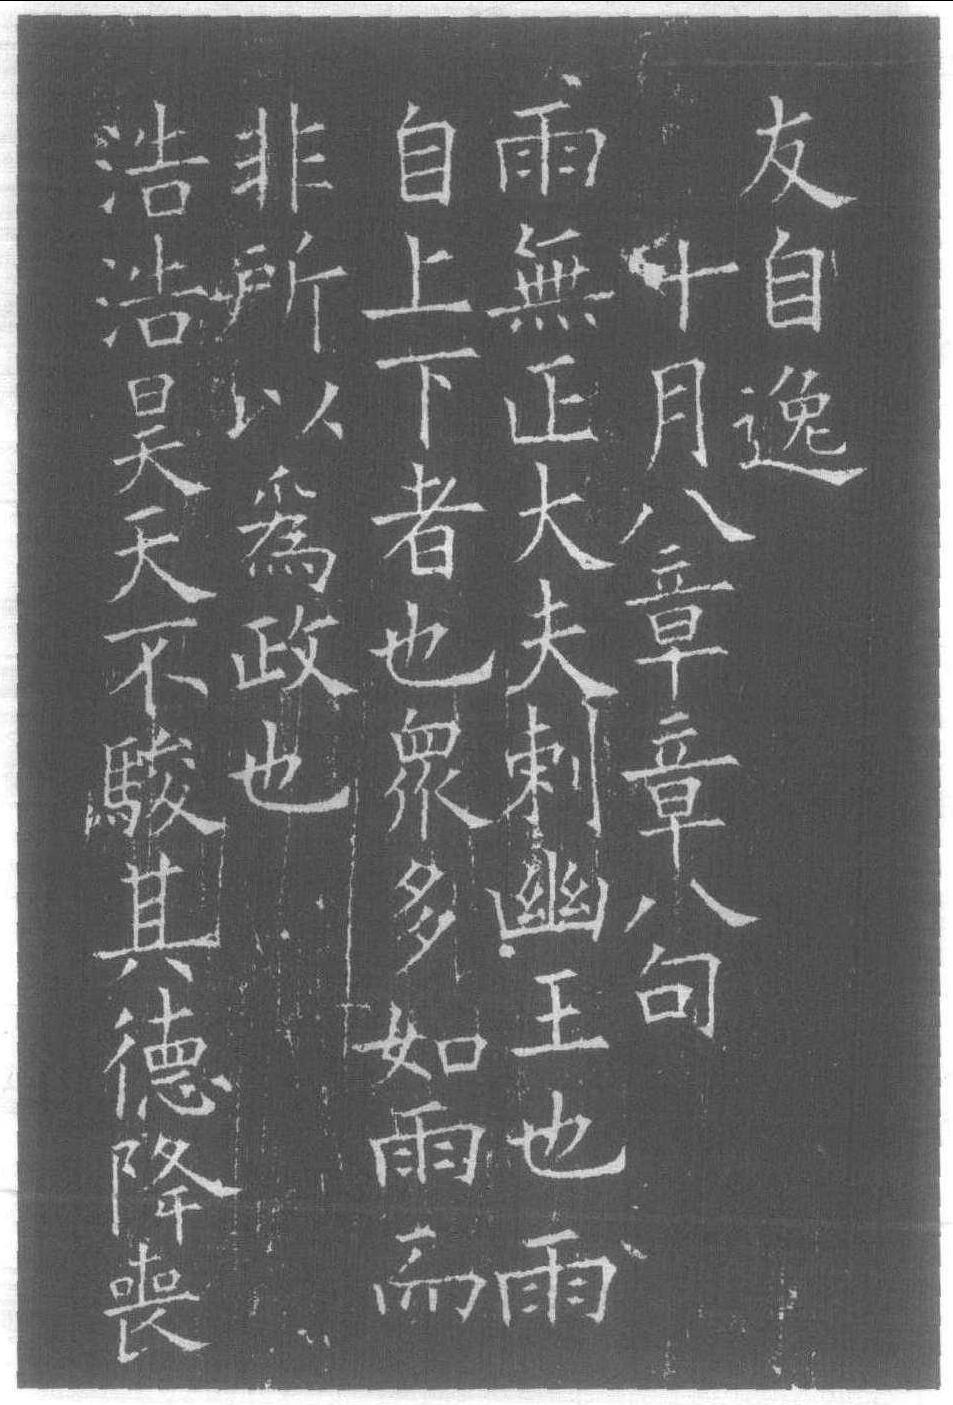 友自逸
十月八章章八句
雨無正大夫刺幽王也雨
自上下者也眾多如雨而
非所以為政也
浩浩昊天不駿其德降喪